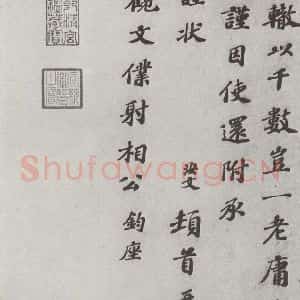 轍以千數豈一老庸
謹因使還附承
狀 頓首
觀文僕射相公 鈞座
Shufawang.CN